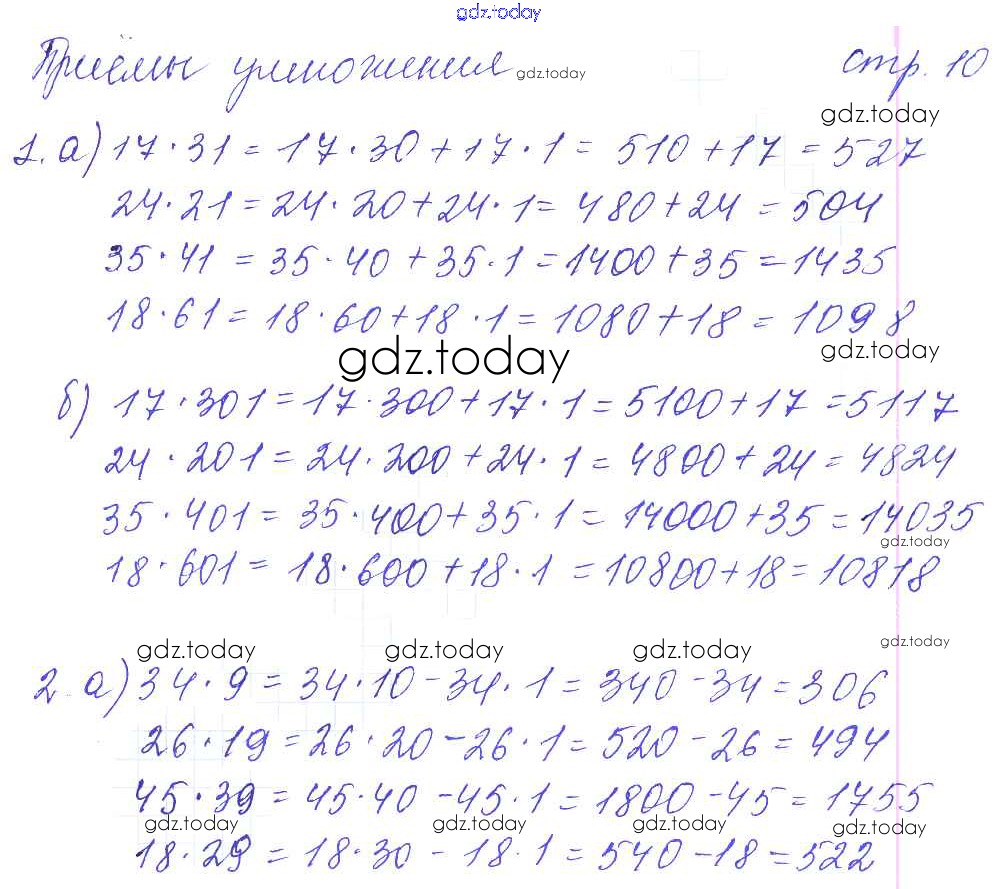 gdz.today
Приёмы умножения gdz.today стр. 10
gdz.today
1. а) 17·31 = 17·30+17·1 = 510+17 = 527
24·21 = 24·20+24·1 = 480+24 = 504
35·41 = 35·40+35·1 = 1400+35 = 1435
18·61 = 18·60+18·1 = 1080+18 = 1098
gdz.today gdz.today
б) 17·301 = 17·300+17·1 = 5100+17 = 5117
24·201 = 24·200+24·1 = 4800+24 = 4824
35·401 = 35·400+35·1 = 14000+35 = 14035
gdz.today
18·601 = 18·600+18·1 = 10800+18 = 10818
gdz.today gdz.today gdz.today gdz.today
2. а) 34·9 = 34·10-34·1 = 340-34 = 306
26·19 = 26·20-26·1 = 520-26 = 494
45·39 = 45·40-45·1 = 1800-45 = 1755
gdz.today gdz.today gdz.today gdz.today
18·29 = 18·30-18·1 = 540-18 = 522